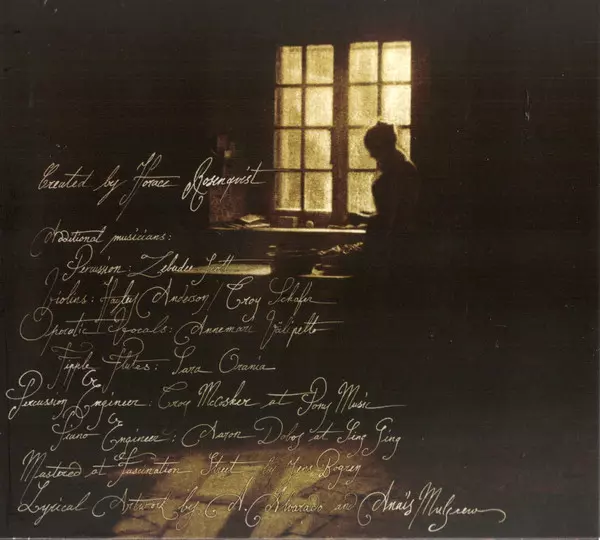 Created by Horace Rosenqvist
Additional musicians:
Percussion: Zebadee Scott
Violins: Hayley Anderson / Troy Schafer
Operatic Vocals: Annemari
Fipple Flutes: Sara Orania
Percussion Engineer: Troy McCosker at Pony Music
Piano Engineer: Aaron Dobos at Sing Sing
Mastered at Fascination Street by Jens Bogren
Lyrical Artwork by A. Alvarado and Anaïs Mulgrew